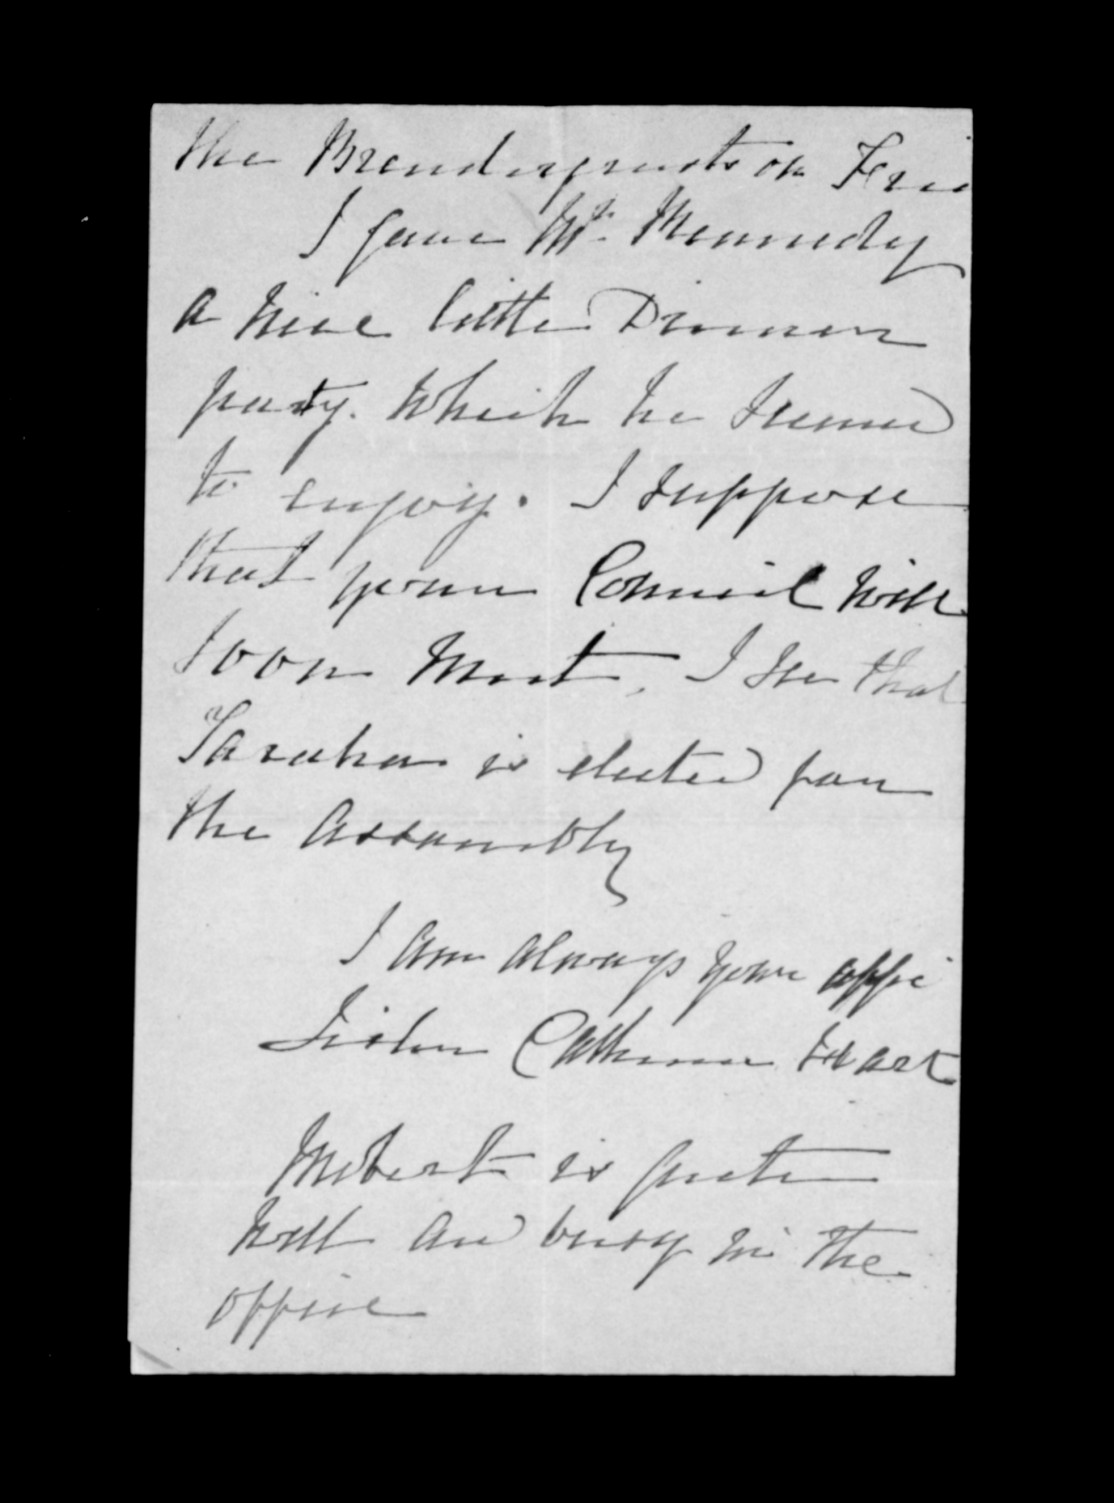 the Prendergrasts on Fri
I gave Mr. Kennedy
a nice little Dinner
party. Which he seemed
to enjoy. I suppose
that your Council will
soon meet. I see that
Taiaha is elected for
the Assembly
I am always your affe
Sister Catherine Hart
Robert is quite
well and busy in the
office